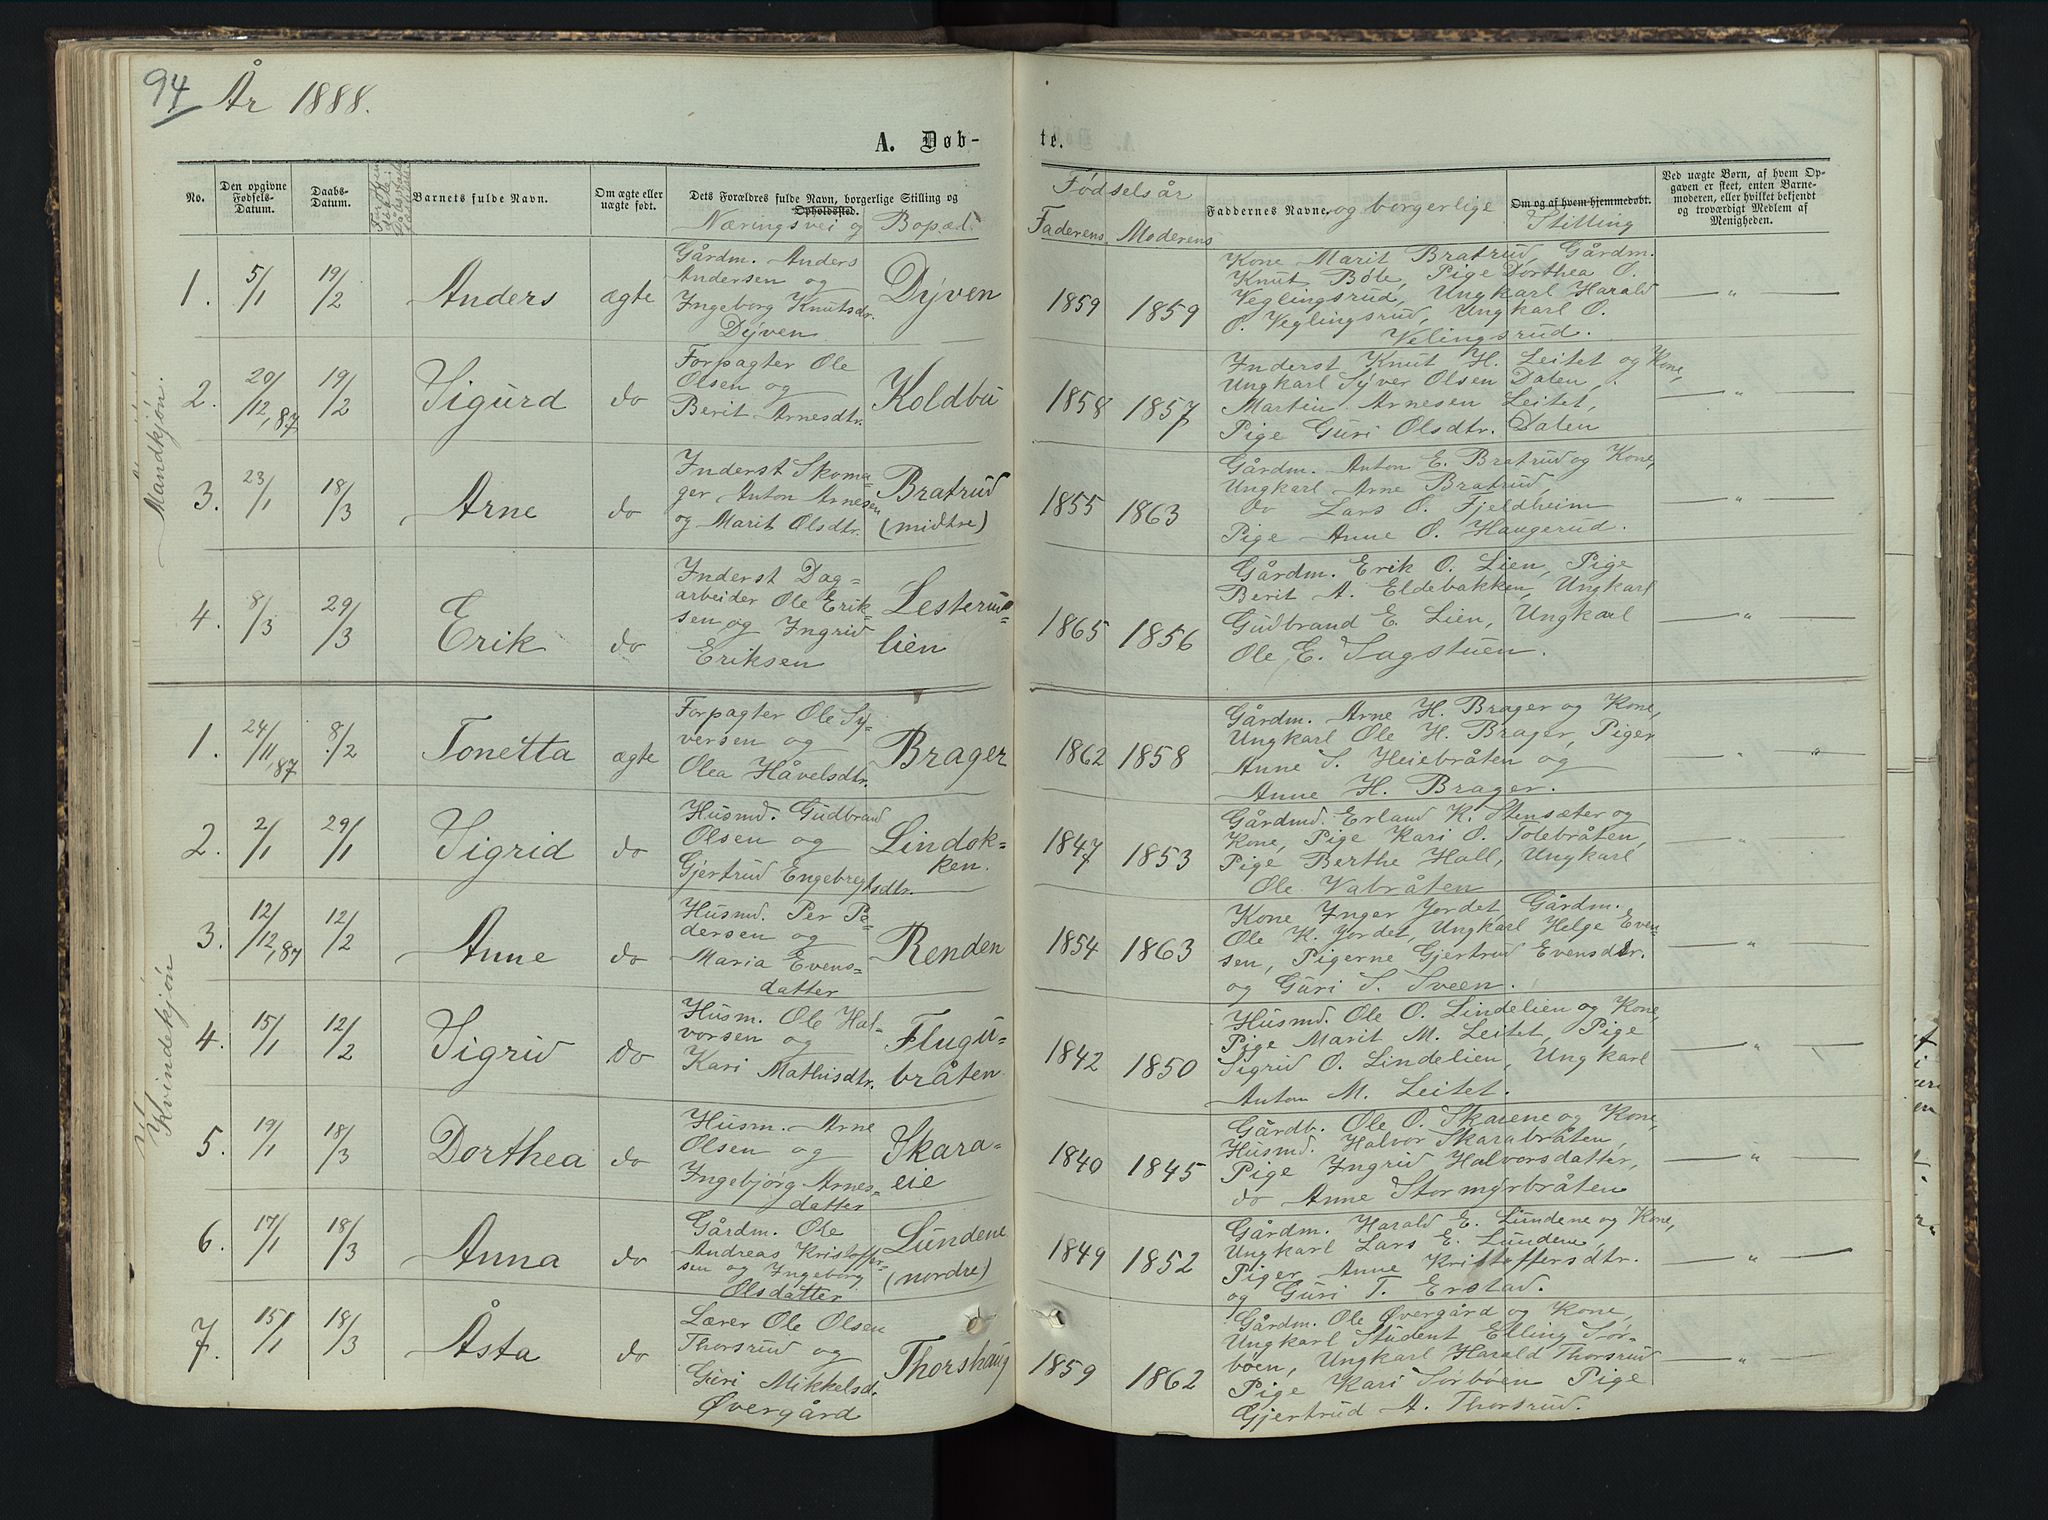 94 År 1888.
A. Døb- te.
No. Den opgivne Fødsels-Datum. Daabs-Datum. Barnets fulde Navn. Om ægte eller uægte født. Dets Forældres fulde Navn, borgerlige Stilling og Opholdssted. Næringsvei og Bopæl. Fødselsår Faderens Moderens Faddernes Navne og borgerlige Stilling Om og af hvem hjemmedøbt. Ved uægte Børn, af hvem Opgaven er sleet, enten Barnemoderen, eller hvilket bekjendt og troværdigt Medlem af Menigheden.
Mandkjøn.
1. 5/1 19/2 Anders ægte Gårdm. Anders
Andersen og
Ingeborg Knutsdr.
Dyven
Dyven 1859 1859
Kone Marit Bratrud, Gårdm.
Knut Bøle, Pige Dorthea O.
Veglingsrud, Ungkarl Harald
O. Veglingsrud, Ungkarl O.
Velingsrud.
— " —
2. 20/12, 87 19/2 Sigurd do Forpagter Ole
Olsen og
Berit Arnesdtr.
Koldbu 1858 1857
Inderst Knut H. Leitet og Kone,
Ungkarl Syver Olsen Dalen,
Martin Arnesen Leitet,
Pige Guri Olsdtr. Dalen
— " —
3. 23/1 18/3 Arne do Inderst Skoma-
ger Anton Arnesen
og Marit Olsdtr.
Bratrud
(midtre) 1855 1863
Gårdm. Anton E. Bratrud og Kone,
Ungkarl Arne Bratrud,
do Lars O. Fjeldheim
Pige Anne O. Haugerud.
— " —
4. 8/3 29/3 Erik do Inderst Dag-
arbeider Ole Erik-
sen og Ingrid
Eriksen
Lesterud-
lien 1865 1856
Gårdm. Erik O. Lien, Pige
Berit A. Eldebakken, Ungkarl
Gudbrand E. Lien, Ungkarl
Ole E. Sagstuen.
— " —
Kvindekjøn
1. 24/11, 87 8/2 Tonetta ægte Forpagter Ole Sy-
versen og
Olea Håvelsdtr.
Brager 1862 1858
Gårdm. Arne H. Brager og Kone,
Ungkarl Ole H. Brager, Piger
Anne S. Heiebråten og
Anne H. Brager.
— " — "
2. 2/1 29/1 Sigrid do Husmd. Gudbrand
Olsen og
Gjertrud Engebregtsdtr.
Lindok-
ken. 1847 1853
Gårdmd. Erland K. Stensæter og
Kone, Pige Kari O. Tolebråten,
Pige Berthe Hall, Ungkarl
Ole Vabråten
— " —
3. 12/12, 87 12/2 Anne do Husmd. Per Pe-
dersen og
Maria Evens-
datter
Renden 1854 1863
Kone Inger Jordet, Gårdm.
Ole K. Jordet, Ungkarl Helge Even-
sen, Pigerne Gjertrud Evensdtr.
og Guri S. Sveen.
— " —
4. 15/1 12/2 Sigrid do Husm. Ole Hal-
vorsen og
Kari Mathisdtr.
Flugu-
bråten 1842 1850
Husmd. Ole O. Lindelien og Kone,
Pige Marit M. Leitet, Pige
Sigrid O. Lindelien, Ungkarl
Anton M. Leitet.
— " —
5. 19/1 18/3 Dorthea do Husm. Arne
Olsen og
Ingebjørg Arnes-
datter
Skara-
eie 1840 1845
Gårdb. Ole O. Skarene og Kone,
Husmd. Halvor Skarabråten,
Pige Ingrid Halvorsdatter,
do Anne Stormyrbråten
— " —
6. 17/1 18/3 Anna do Gårdm. Ole
Andreas Kristoffer-
sen og Ingeborg
Olsdatter
Lundene
(nordre) 1849 1852
Gårdm. Harald E. Lundene og Kone,
Ungkarl Lars E. Lundene,
Piger Anne Kristoffersdtr.
og Guri T. Erstad.
— " —
7. 15/1 18/3 Åsta do Lærer Ole Olsen
Thorsrud og
Guri Mikkelsd.
Øvergård
Thorshaug 1859 1862
Gårdm. Ole Øvergård og Kone,
Ungkarl Student Elling Sør-
bøen, Ungkarl Harald Thorsrud
Pige Kari Sørbøen Pige
Gjertrud A. Thorsrud.
— " —